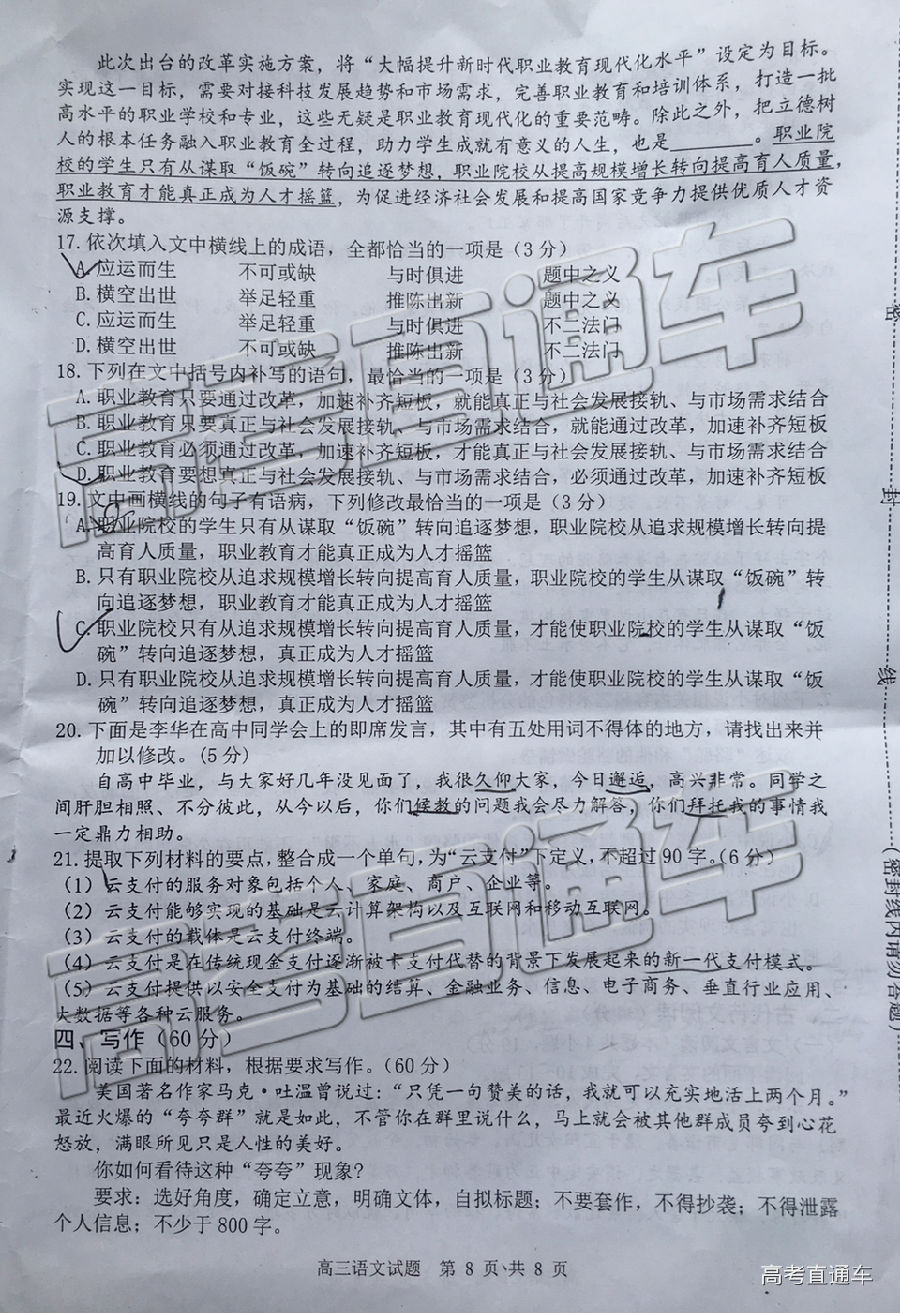 此次出台的改革实施方案，将“大幅提升新时代职业教育现代化水平”设定为目标。
实现这一目标，需要对接科技发展趋势和市场需求，完善职业教育和培训体系，打造一批
高水平的职业学校和专业，这些无疑是职业教育现代化的重要范畴。除此之外，把立德树
人的根本任务融入职业教育全过程，助力学生成就有意义的人生，也是________。职业院
校的学生只有从谋取“饭碗”转向追逐梦想，职业院校从提高规模增长转向提高育人质量，
职业教育才能真正成为人才摇篮，为促进经济社会发展和提高国家竞争力提供优质人才资
源支撑。
17.依次填入文中横线上的成语，全都恰当的一项是(3分)
A.应运而生 不可或缺 与时俱进 题中之义
B.横空出世 举足轻重 推陈出新 题中之义
C.应运而生 举足轻重 与时俱进 不二法门
D.横空出世 不可或缺 推陈出新 不二法门
18.下列在文中括号内补写的语句，最恰当的一项是(3分)
A.职业教育只要通过改革，加速补齐短板，就能真正与社会发展接轨、与市场需求结合
B.职业教育只要真正与社会发展接轨、与市场需求结合，就能通过改革，加速补齐短板
C.职业教育必须通过改革，加速补齐短板，才能真正与社会发展接轨、与市场需求结合
D.职业教育要想真正与社会发展接轨、与市场需求结合，必须通过改革，加速补齐短板
19.文中画横线的句子有语病，下列修改最恰当的一项是(3分)
A.职业院校的学生只有从谋取“饭碗”转向追逐梦想，职业院校从追求规模增长转向提
高育人质量，职业教育才能真正成为人才摇篮
B.只有职业院校从追求规模增长转向提高育人质量，职业院校的学生从谋取“饭碗”转
向追逐梦想，职业教育才能真正成为人才摇篮
C.职业院校只有从追求规模增长转向提高育人质量，才能使职业院校的学生从谋取“饭
碗”转向追逐梦想，真正成为人才摇篮
D.只有职业院校从追求规模增长转向提高育人质量，才能使职业院校的学生从谋取“饭
碗”转向追逐梦想，真正成为人才摇篮
20.下面是李华在高中同学会上的即席发言，其中有五处用词不得体的地方，请找出来并
加以修改。(5分)
自高中毕业，与大家好几年没见面了，我很久仰大家，今日邂逅，高兴非常。同学之
间肝胆相照、不分彼此，从今以后，你们候教的问题我会尽力解答，你们拜托我的事情我
一定鼎力相助。
21.提取下列材料的要点，整合成一个单句，为“云支付”下定义，不超过90字。(6分)
(1)云支付的服务对象包括个人、家庭、商户、企业等。
(2)云支付能够实现的基础是云计算架构以及互联网和移动互联网。
(3)云支付的载体是云支付终端。
(4)云支付是在传统现金支付逐渐被卡支付代替的背景下发展起来的新一代支付模式。
(5)云支付提供以安全支付为基础的结算、金融业务、信息、电子商务、垂直行业应用、
大数据等各种云服务。
四、写作(60分)
22.阅读下面的材料，根据要求写作。(60分)
美国著名作家马克·吐温曾说过：“只凭一句赞美的话，我就可以充实地活上两个月。”
最近火爆的“夸夸群”就是如此，不管你在群里说什么，马上就会被其他群成员夸到心花
怒放，满眼所见只是人性的美好。
你如何看待这种“夸夸”现象?
要求：选好角度，确定立意，明确文体，自拟标题；不要套作，不得抄袭；不得泄露
个人信息；不少于800字。
高三语文试题 第 8 页 共 8 页
密
封
线
(密封线内请勿答题)
高考直通车
高考直通车
高考直通车